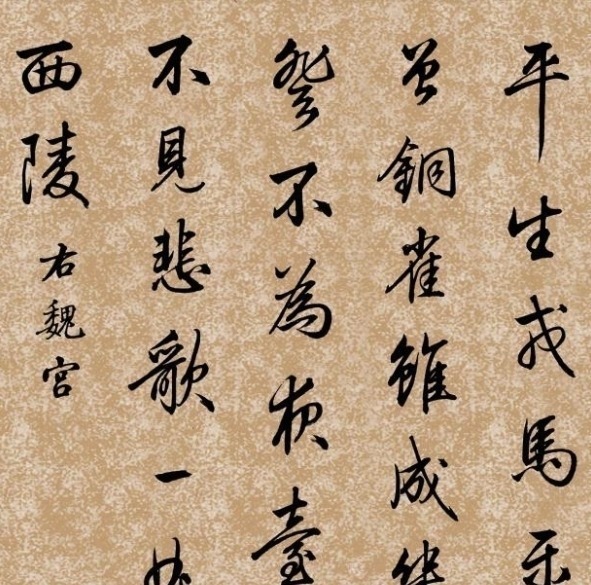 平生戎馬
銅雀雖成
不為夜臺
不見悲歌一
西陵
右魏宮